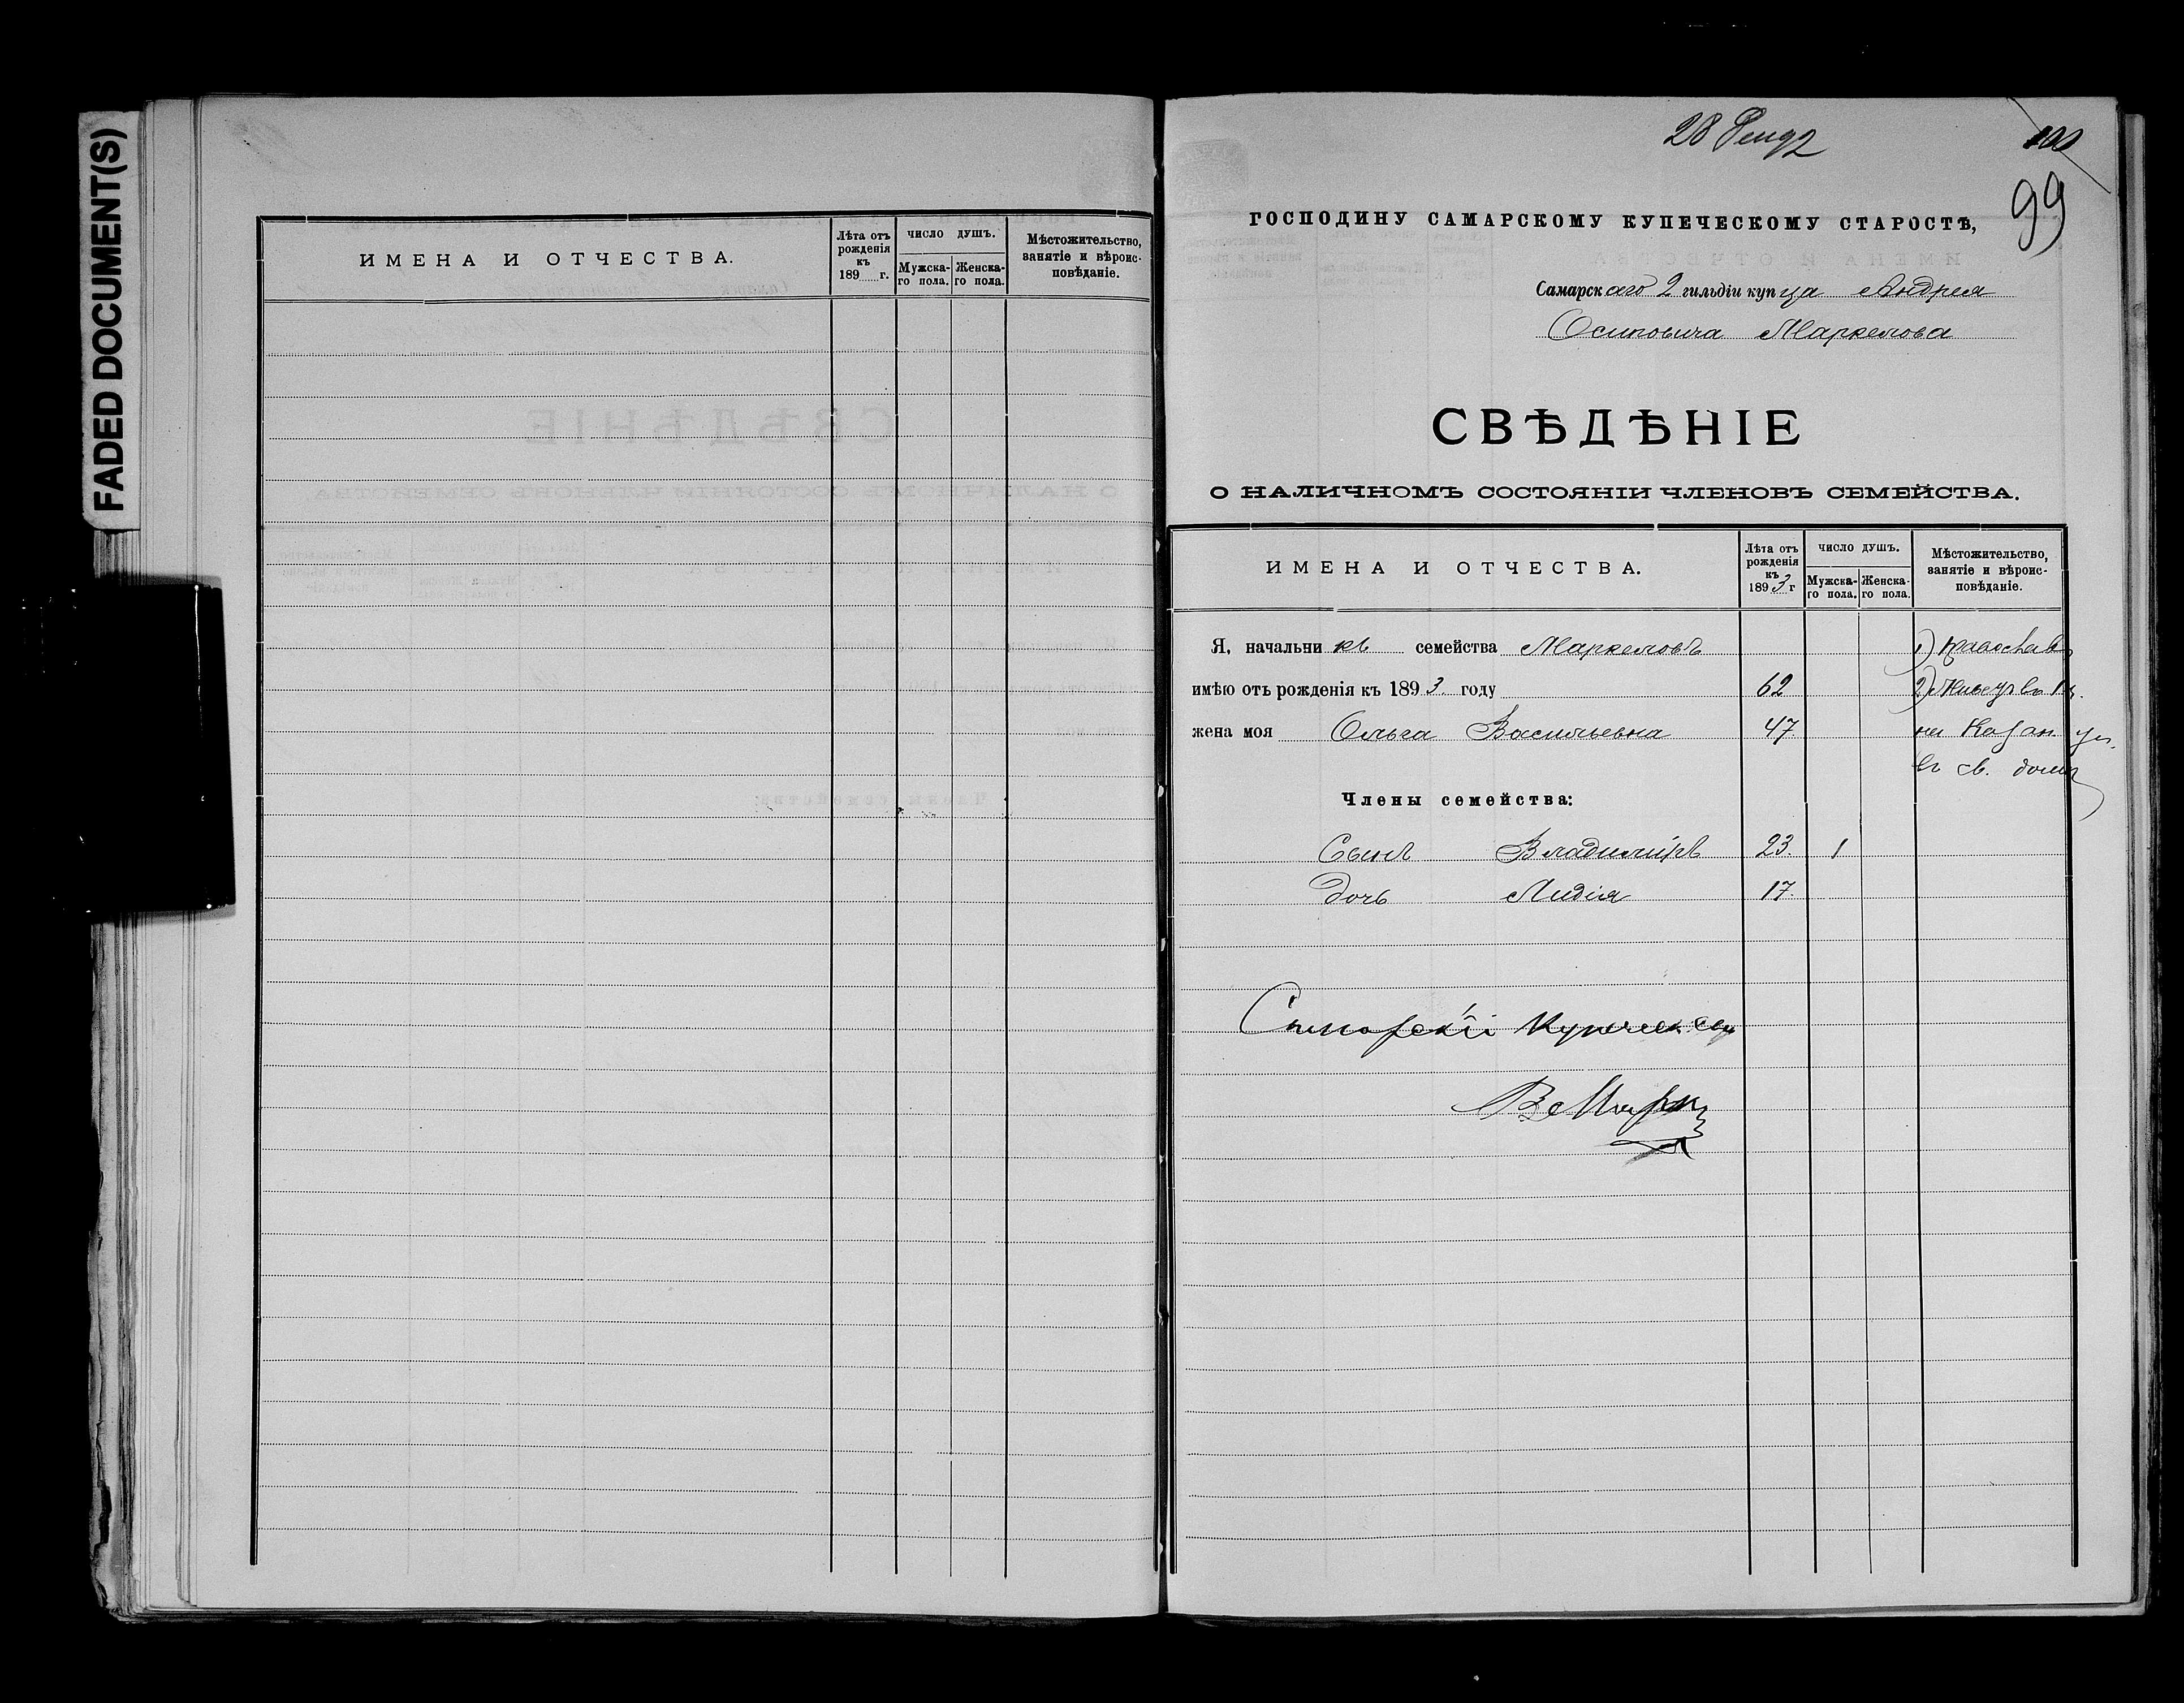 FADED DOCUMENT(S)
ИМЕНА И ОТЧЕСТВА.
Лѣта отъ рожденія къ 189 г.
ЧИСЛО ДУШЪ.
Мужска-го пола.
Женска-го пола.
Мѣстожительство, занятіе и вѣроис-повѣданіе.
28
100
99
ГОСПОДИНУ САМАРСКОМУ КУПЕЧЕСКОМУ СТАРОСТѢ,
Самарскаго 2 гильдіи купца Андрея
Осиповича Маркелова
СВѢДѢНІЕ
О НАЛИЧНОМЪ СОСТОЯНІИ ЧЛЕНОВЪ СЕМЕЙСТВА.
ИМЕНА И ОТЧЕСТВА.
Лѣта отъ рожденія къ 1893 г
ЧИСЛО ДУШЪ.
Мужска-го пола.
Женска-го пола.
Мѣстожительство, занятіе и вѣроис-повѣданіе.
Я, начальникъ семейства Маркеловъ 1) православ
имѣю отъ рожденія къ 1893 году 62 2)
жена моя Ольга Васильевна 47 на Казан. ул.
въ св. домѣ
Члены семейства:
Сынъ Владиміръ 23. 1
дочь Лидія 17.
Самарскій Купеческ.